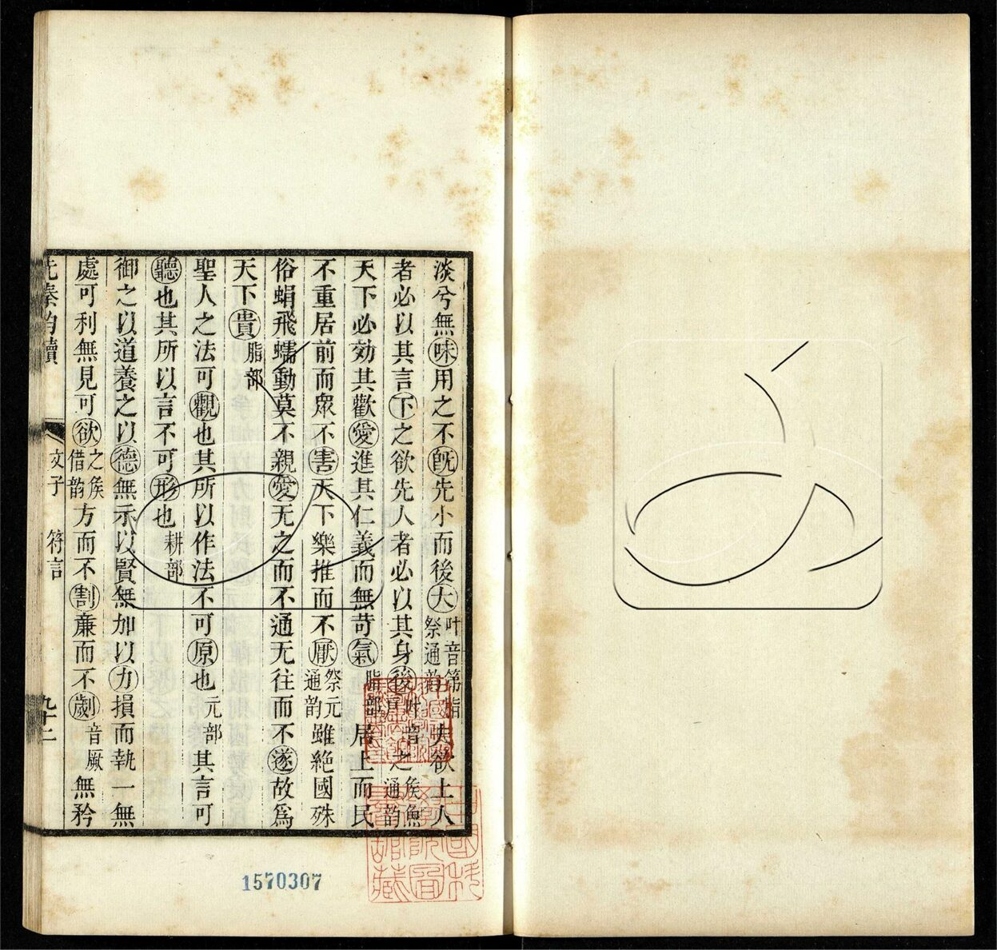 淡兮無味用之不旣先小而後大叶音第脂祭通韵夫欲上人
者必以其言下之欲先人者必以其身後叶音戶之矦魚通韵
天下必効其歡愛進其仁義而無苛氣脂部居上而民
不重居前而衆不害天下樂推而不厭祭元通韵雖絶國殊
俗蜎飛蠕動莫不親愛无之而不通无往而不遂故爲
天下貴脂部
聖人之法可觀也其所以作法不可原也元部其言可
聽也其所以言不可形也耕部
御之以道養之以德無示以賢無加以力損而執一無
處可利無見可欲之矦借韵方而不割亷而不劌音厥無矜
先秦韵讀
文子 符言
九十二
1570307